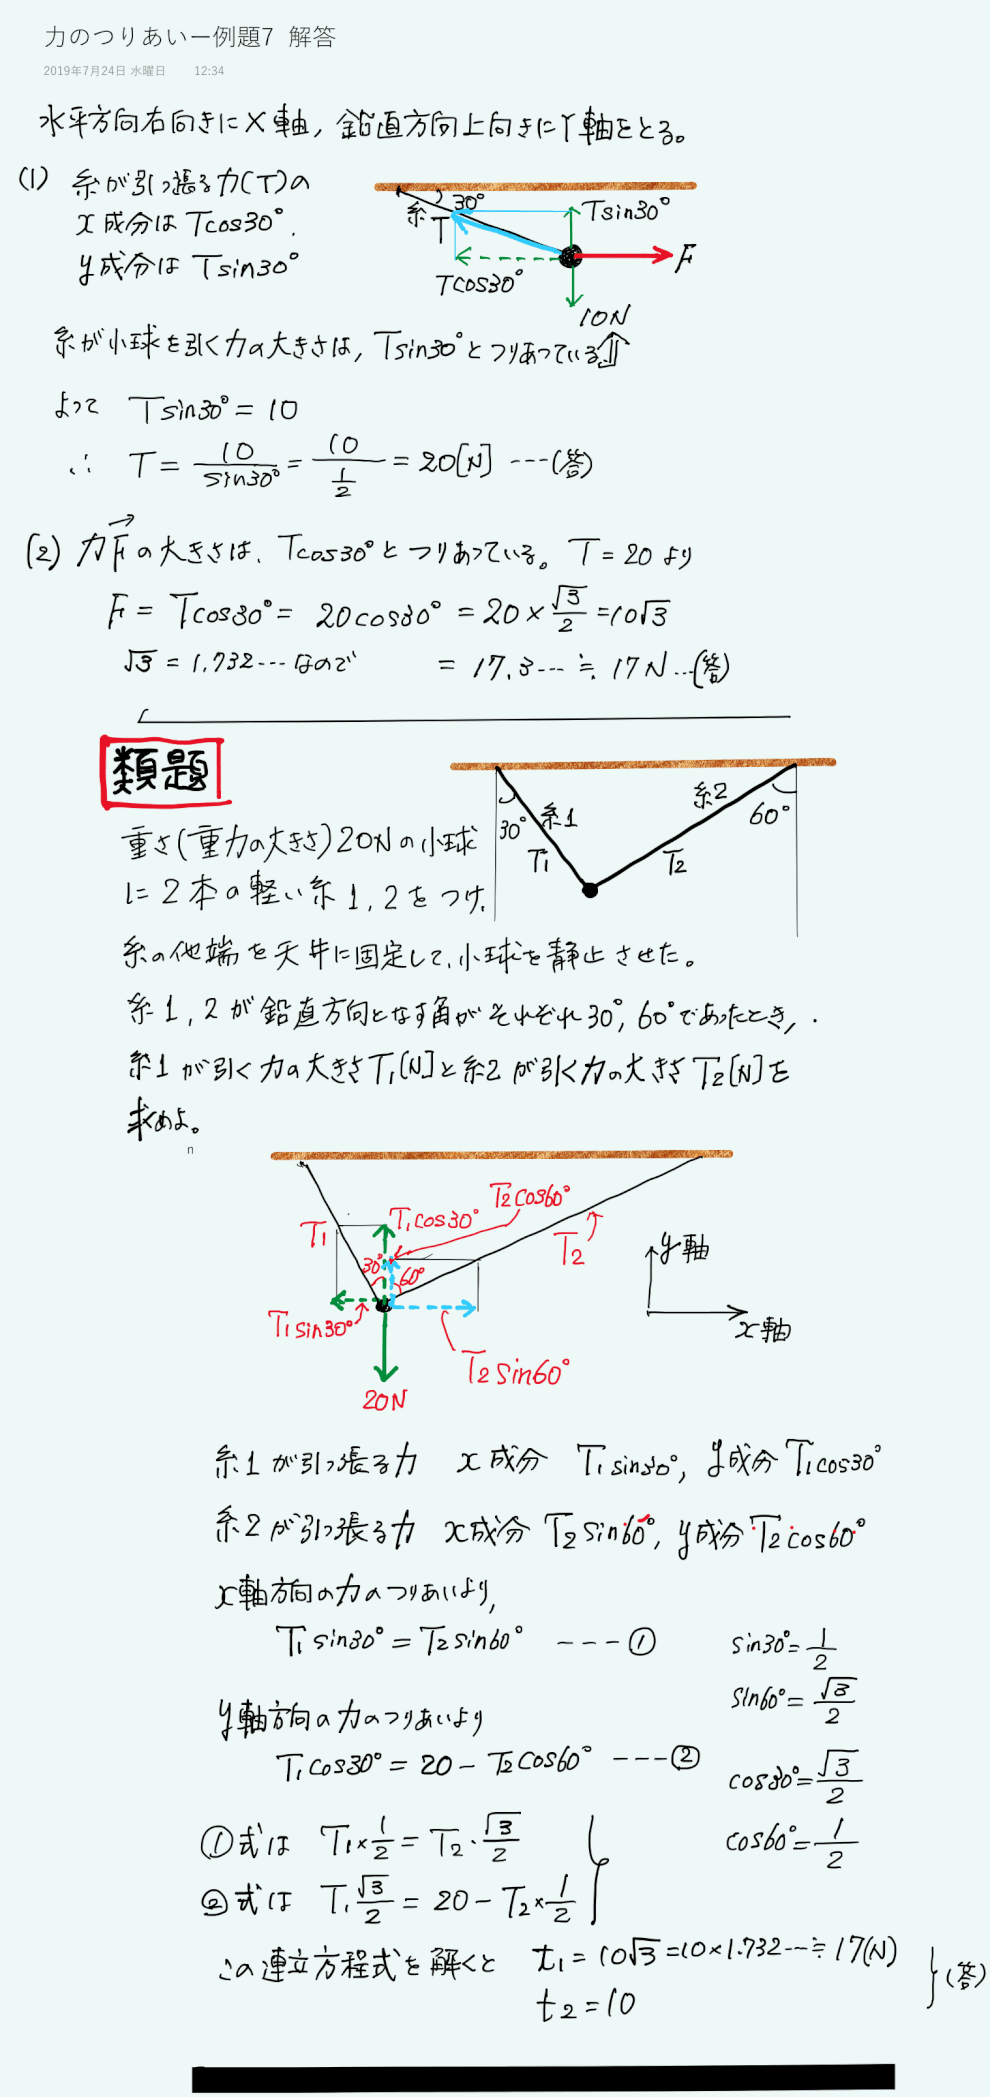 力のつりあいー例題7 解答
2019年7月24日 水曜日 12:34
水平方向右向きにX軸，鉛直方向上向きにY軸をとる。
(1) 糸が引っ張る力(T)の
x成分は Tcos30°．
y成分は Tsin30°
糸 30° T Tsin30°
Tcos30° F
10N
糸が小球を引く力の大きさは，Tsin30°とつりあっている
よって Tsin30° = 10
∴ T = 10/sin30° = 10/(1/2) = 20[N] ----(答)
(2) 力F→の大きさは、Tcos30°とつりあっている。T = 20 より
F = Tcos30° = 20cos30° = 20 × √3/2 = 10√3
√3 = 1.732･･･なので = 17.3･･･ ≒ 17N ･･･(答)
類題
30° 糸1 T1 糸2 T2 60°
重さ(重力の大きさ)20Nの小球
に2本の軽い糸1,2をつけ、
糸の他端を天井に固定して、小球を静止させた。
糸1,2が鉛直方向となす角がそれぞれ30°,60°であったとき，
糸1が引く力の大きさT1[N]と糸2が引く力の大きさT2[N]を
求めよ。
n
T2cos60°
T1 T1cos30° T2
30° 60°
T1sin30°
T2sin60°
20N
y軸
x軸
糸1が引っ張る力 x成分 T1sin30°，y成分 T1cos30°
糸2が引っ張る力 x成分 T2sin60°，y成分 T2cos60°
x軸方向の力のつりあいより，
T1sin30° = T2sin60° ----①
sin30° = 1/2
sin60° = √3/2
y軸方向の力のつりあいより
T1cos30° = 20 − T2cos60° ----②
cos30° = √3/2
cos60° = 1/2
①式は T1 × 1/2 = T2 ･ √3/2
②式は T1 √3/2 = 20 − T2 × 1/2
この連立方程式を解くと t1 = 10√3 = 10×1.732･･･≒ 17(N)
t2 = 10
(答)